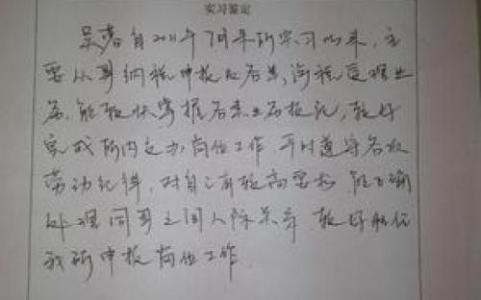 实习鉴定
吴蓉自2011年7月来所实习以来，主
要从事纳税申报及各类涉税受理业
务，能较快掌握各类业务技能，较好
完成所内交办岗位工作，平时遵守各项
劳动纪律，对自己有较高要求，能正确
处理同事之间人际关系，较好胜任
我所申报岗位工作。